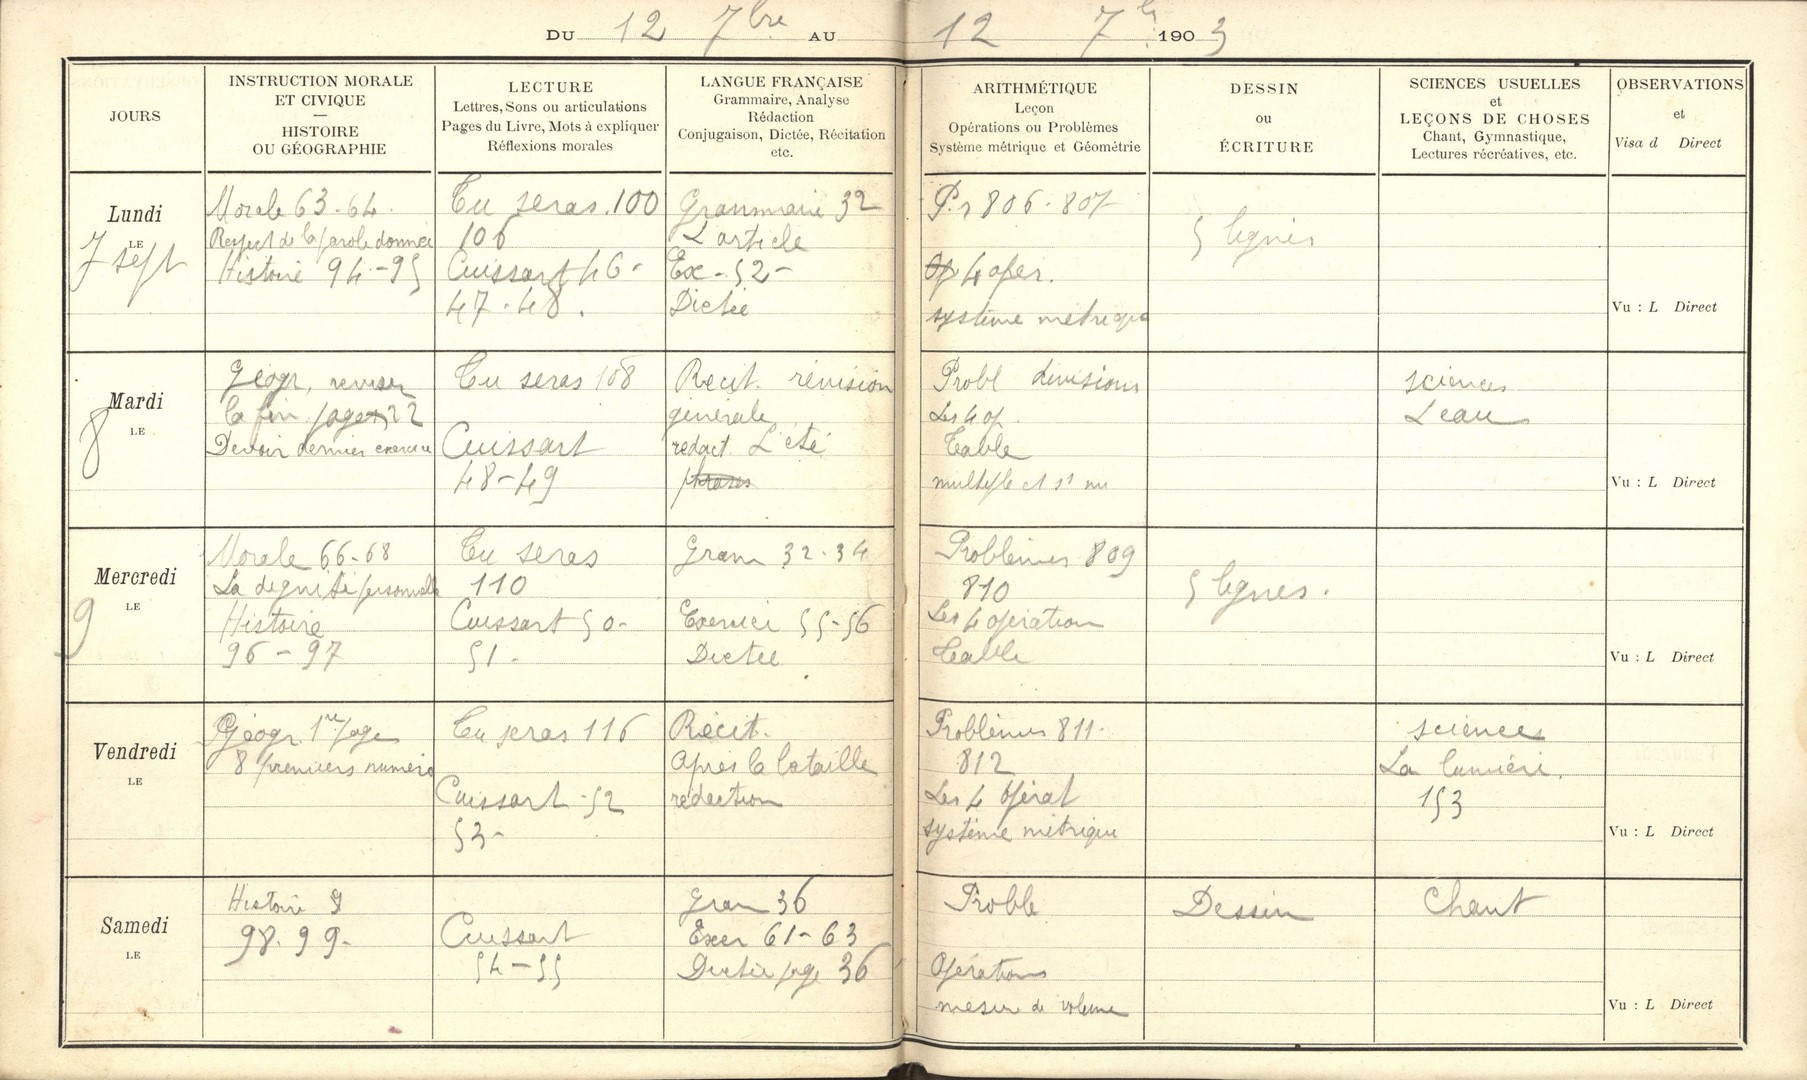 DU 12 7bre AU 12 7bre 1903
JOURS
INSTRUCTION MORALE
ET CIVIQUE
HISTOIRE
OU GÉOGRAPHIE
LECTURE
Lettres, Sons ou articulations
Pages du Livre, Mots à expliquer
Réflexions morales
LANGUE FRANÇAISE
Grammaire, Analyse
Rédaction
Conjugaison, Dictée, Récitation
etc.
ARITHMÉTIQUE
Leçon
Opérations ou Problèmes
Système métrique et Géométrie
DESSIN
ou
ÉCRITURE
SCIENCES USUELLES
et
LEÇONS DE CHOSES
Chant, Gymnastique,
Lectures récréatives, etc.
OBSERVATIONS
et
Visa d Direct
Lundi
LE
7 sept
Morale 63-64.
Respect de la parole donnée
Histoire 94-95
Tu seras.100
106
Cuissart 46-
47-48.
Grammaire 32
L'article
Ex-52-
Dictée
Pr 806-807
Op 4 oper.
système métrique
5 lignes
Vu : L Direct
Mardi
LE
8
Géogr, reviser
la fin page 22
Devoir dernier exercice
Tu seras 108
Cuissart
48-49
Recit. révision
générale
redact. L'été
phrases
Probl divisions
Les 4 op
Table
multiple et
sciences
L'eau
Vu : L Direct
Mercredi
LE
9
Morale 66-68
La dignité personnelle
Histoire
96-97
Tu seras
110
Cuissart 50-
51-
Gram 32-34
Exercice 55-56
Dictée
Problèmes 809
810
Les 4 opération
Table
5 lignes.
Vu : L Direct
Vendredi
LE
Géogr 1re page
8 premiers numéro
Tu seras 116
Cuissart-52
53-
Récit.
Après la bataille
rédaction
Problèmes 811-
812
Les 4 opérat
système métrique
sciences
La lumière.
153
Vu : L Direct
Samedi
LE
Histoire 9
98.99-
Cuissart
54-55
Gram 36
Exer 61-63
Dictée page 36
Proble
Opérations
mesur de volume
Dessin
Chant
Vu : L Direct